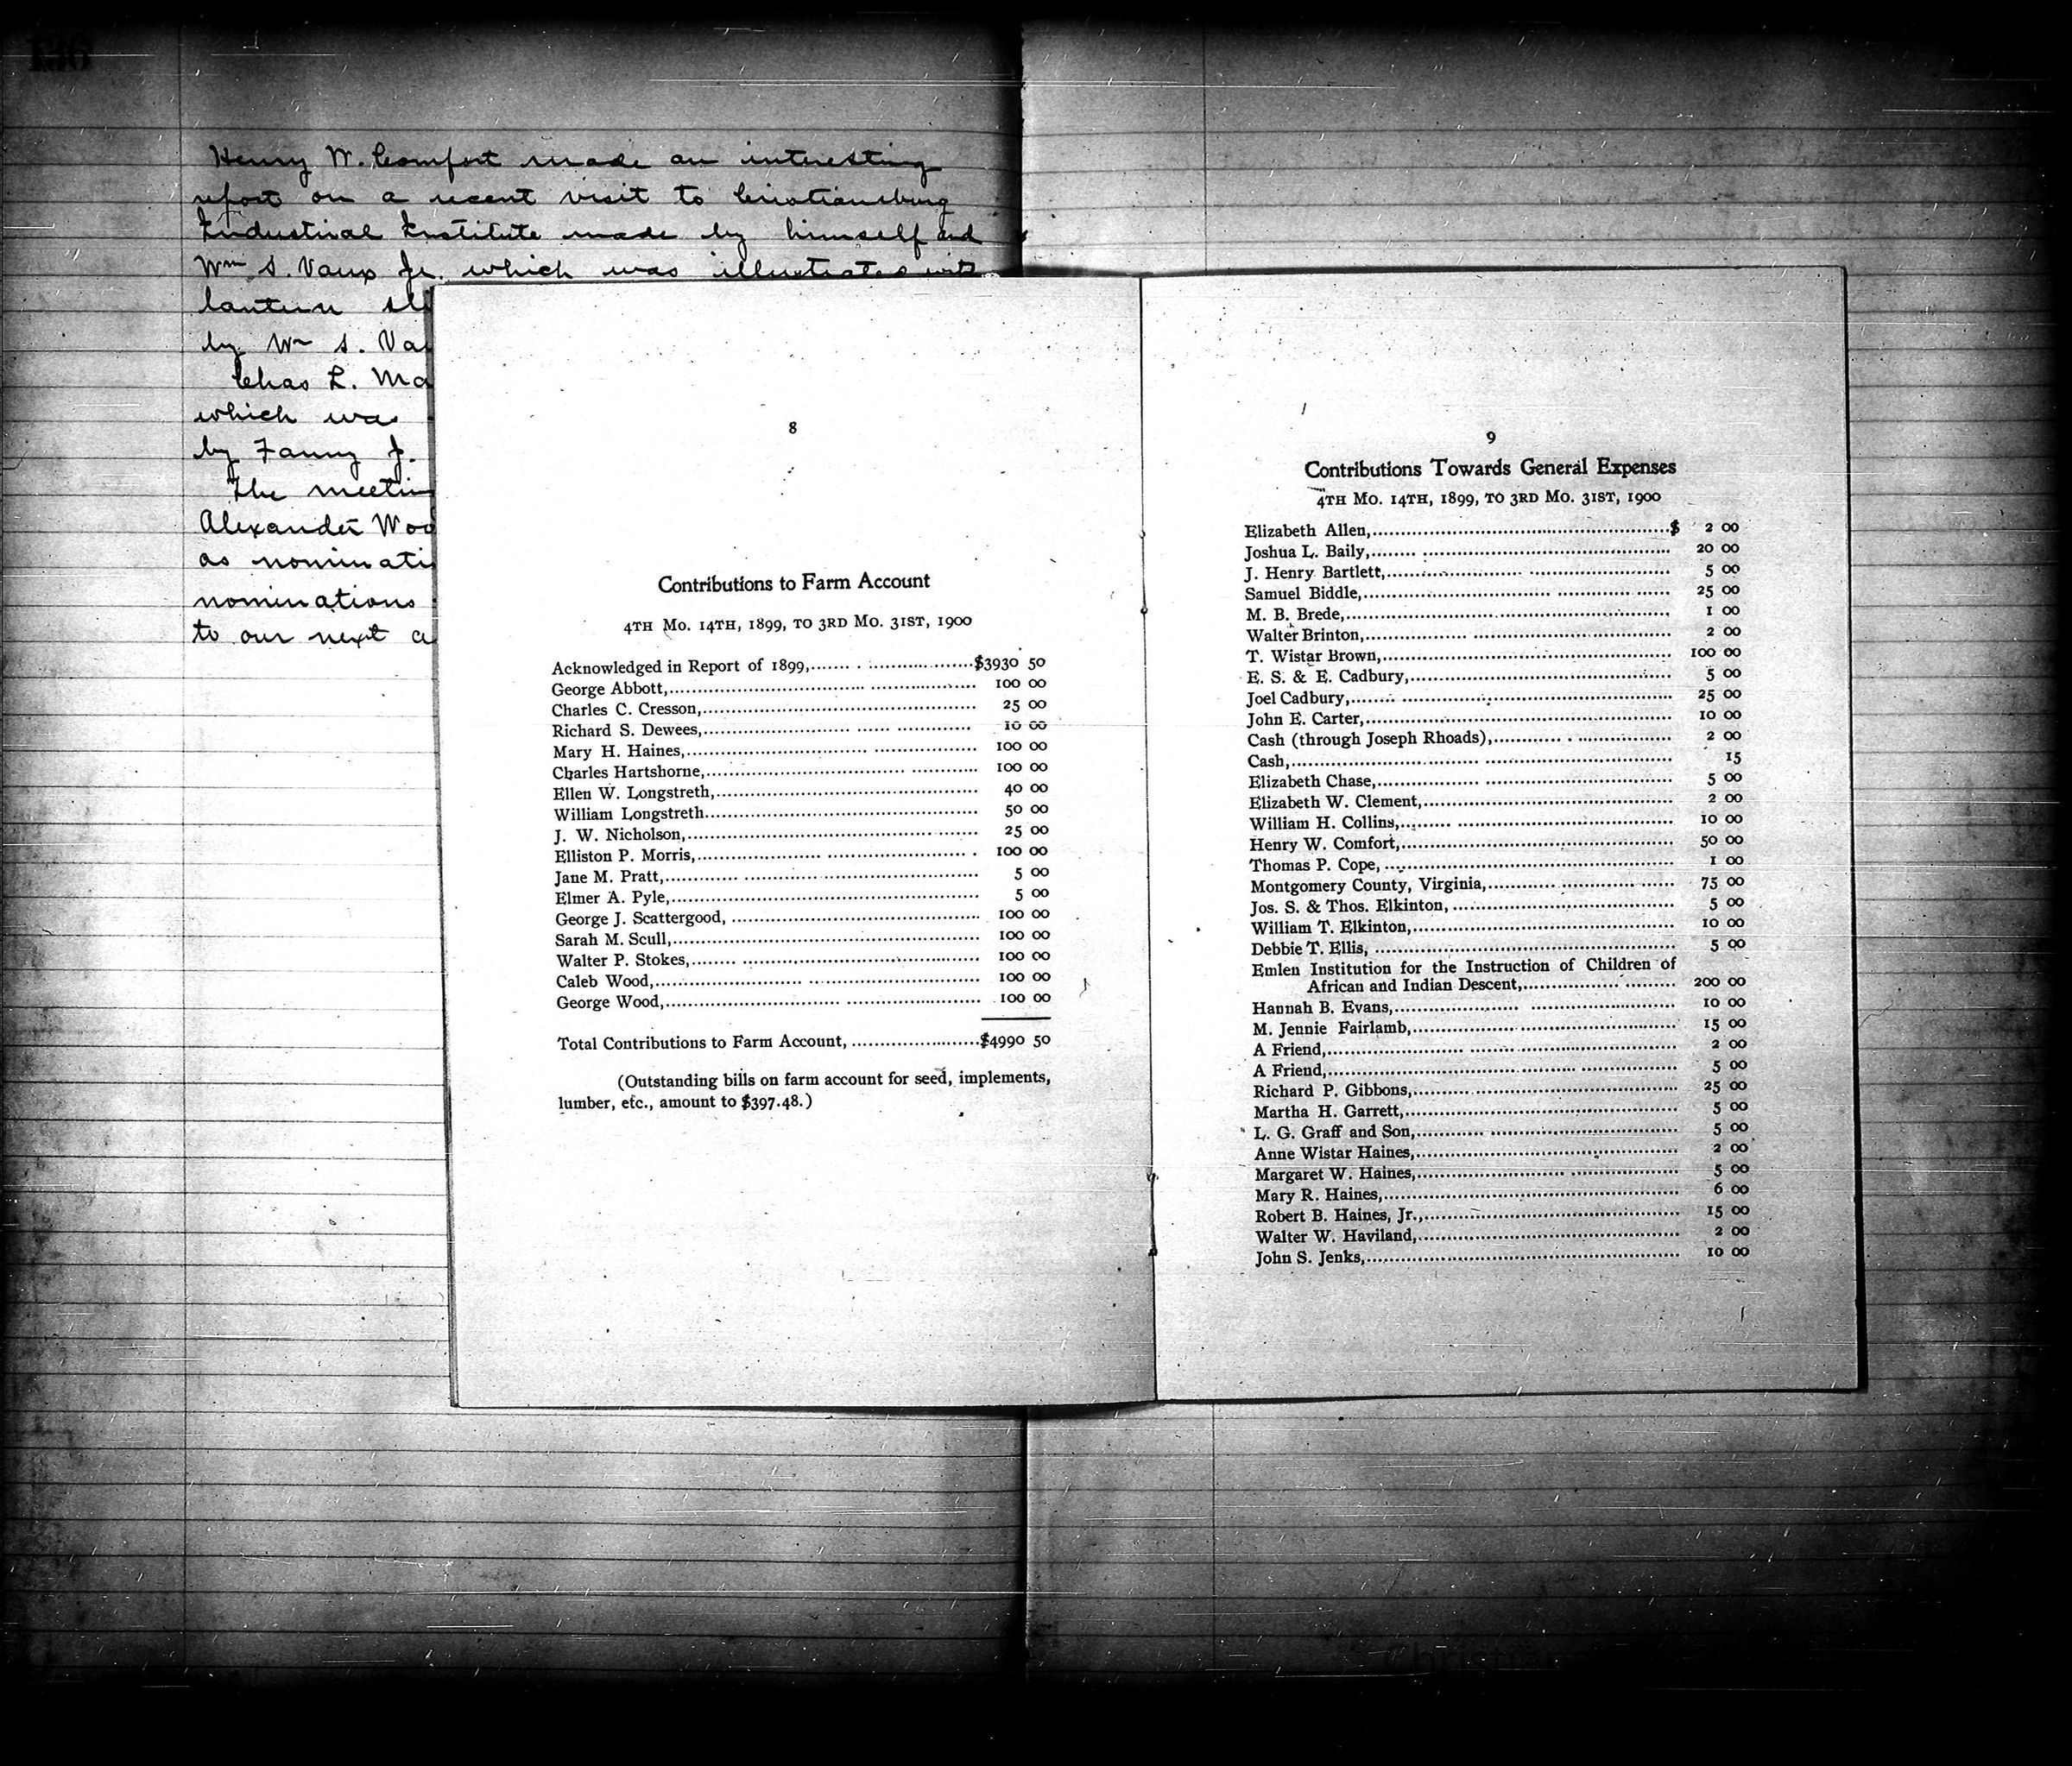 136
Henry W. Comfort made an interesting
report on a recent visit to Christiansburg
Industrial Institute made by himself and
Wm S. Vaux Jr. which was illustrated with
lantern
by Wm S.
Chas L.
which was
by Fanny J.
The
Alexander
as
nominations
to our next
8
Contributions to Farm Account
4TH MO. 14TH, 1899, TO 3RD MO. 31ST, 1900
Acknowledged in Report of 1899,....... . ..........................$3930 50
George Abbott,............................................................ 100 00
Charles C. Cresson,...................................................... 25 00
Richard S. Dewees,............................. ...... ............. 10 00
Mary H. Haines,......................................................... 100 00
Charles Hartshorne,..................................................... 100 00
Ellen W. Longstreth,................................................... 40 00
William Longstreth..................................................... 50 00
J. W. Nicholson,......................................................... 25 00
Elliston P. Morris,..................... ............................ . 100 00
Jane M. Pratt,............................................................ 5 00
Elmer A. Pyle,........................................................... 5 00
George J. Scattergood, ................................................ 100 00
Sarah M. Scull,.......................................................... 100 00
Walter P. Stokes,........ ............................................. 100 00
Caleb Wood,.............................................................. 100 00
George Wood,............................................................ 100 00
Total Contributions to Farm Account, .......................$4990 50
(Outstanding bills on farm account for seed, implements,
lumber, etc., amount to $397.48.)
9
Contributions Towards General Expenses
4TH MO. 14TH, 1899, TO 3RD MO. 31ST, 1900
Elizabeth Allen,.....................................................$ 2 00
Joshua L. Baily,........ ............................................. 20 00
J. Henry Bartlett,..................................................... 5 00
Samuel Biddle,......................................................... 25 00
M. B. Brede,............................................................ 1 00
Walter Brinton,........................................................ 2 00
T. Wistar Brown,...................................................... 100 00
E. S. & E. Cadbury,.................................................. 5 00
Joel Cadbury,........................................................... 25 00
John E. Carter,......................................................... 10 00
Cash (through Joseph Rhoads),............ . ................ 2 00
Cash,...................................................................... 15
Elizabeth Chase,....................................................... 5 00
Elizabeth W. Clement,............................................... 2 00
William H. Collins,................................................... 10 00
Henry W. Comfort,................................................... 50 00
Thomas P. Cope, ...................................................... 1 00
Montgomery County, Virginia,.................................. 75 00
Jos. S. & Thos. Elkinton, ........................................... 5 00
William T. Elkinton,................................................. 10 00
Debbie T. Ellis, ........................................................ 5 00
Emlen Institution for the Instruction of Children of
African and Indian Descent,............................. 200 00
Hannah B. Evans,..................................................... 10 00
M. Jennie Fairlamb,.................................................. 15 00
A Friend,................................................................. 2 00
A Friend,................................................................. 5 00
Richard P. Gibbons,.................................................. 25 00
Martha H. Garrett,.................................................... 5 00
L. G. Graff and Son,.................................................. 5 00
Anne Wistar Haines,................................................. 2 00
Margaret W. Haines,.................................................. 5 00
Mary R. Haines,....................................................... 6 00
Robert B. Haines, Jr.,................................................ 15 00
Walter W. Haviland,.................................................. 2 00
John S. Jenks,.......................................................... 10 00